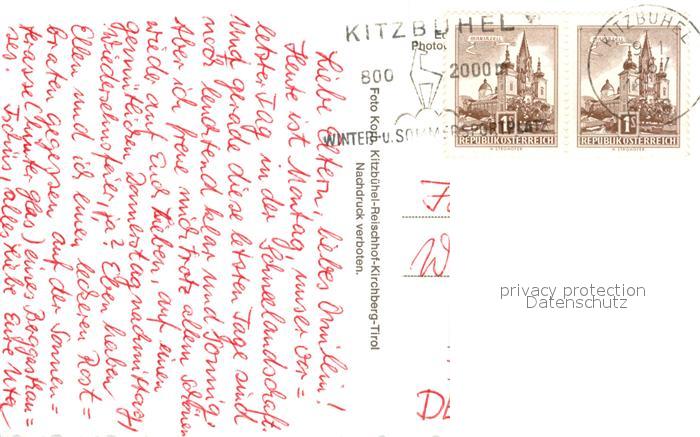 Liebe Eltern, liebes Omilein!
Heute ist Montag, unser vor=
letzter Tag in der Schneelandschaft.
Und gerade diese letzten Tage sind
noch leuchtend klar und sonnig.
Aber ich freue mich trotz allem schon
wieder auf Euch Lieben, auf einen
gemütlichen Donnerstagnachmittag
Wiedersehensfeier, ja? Eben haben
Ellen und ich einen leckeren Rost=
braten gegessen auf der Sonnen=
terasse (hinter glas) eines Berggasthau=
ses. Tschüs, alles Liebe Eure Uta
Foto Kopp, Kitzbühel-Reischhof-Kirchberg-Tirol
Nachdruck verboten.
KITZBÜHEL
800 2000m
WINTER-U.SOMMERSPORTPLATZ
Photo
MARIAZELL
1S
REPUBLIK ÖSTERREICH
H. STROHOFER
MARIAZELL
1S
REPUBLIK ÖSTERREICH
H. STROHOFER
KITZBÜHEL
W
DE
privacy protection
Datenschutz